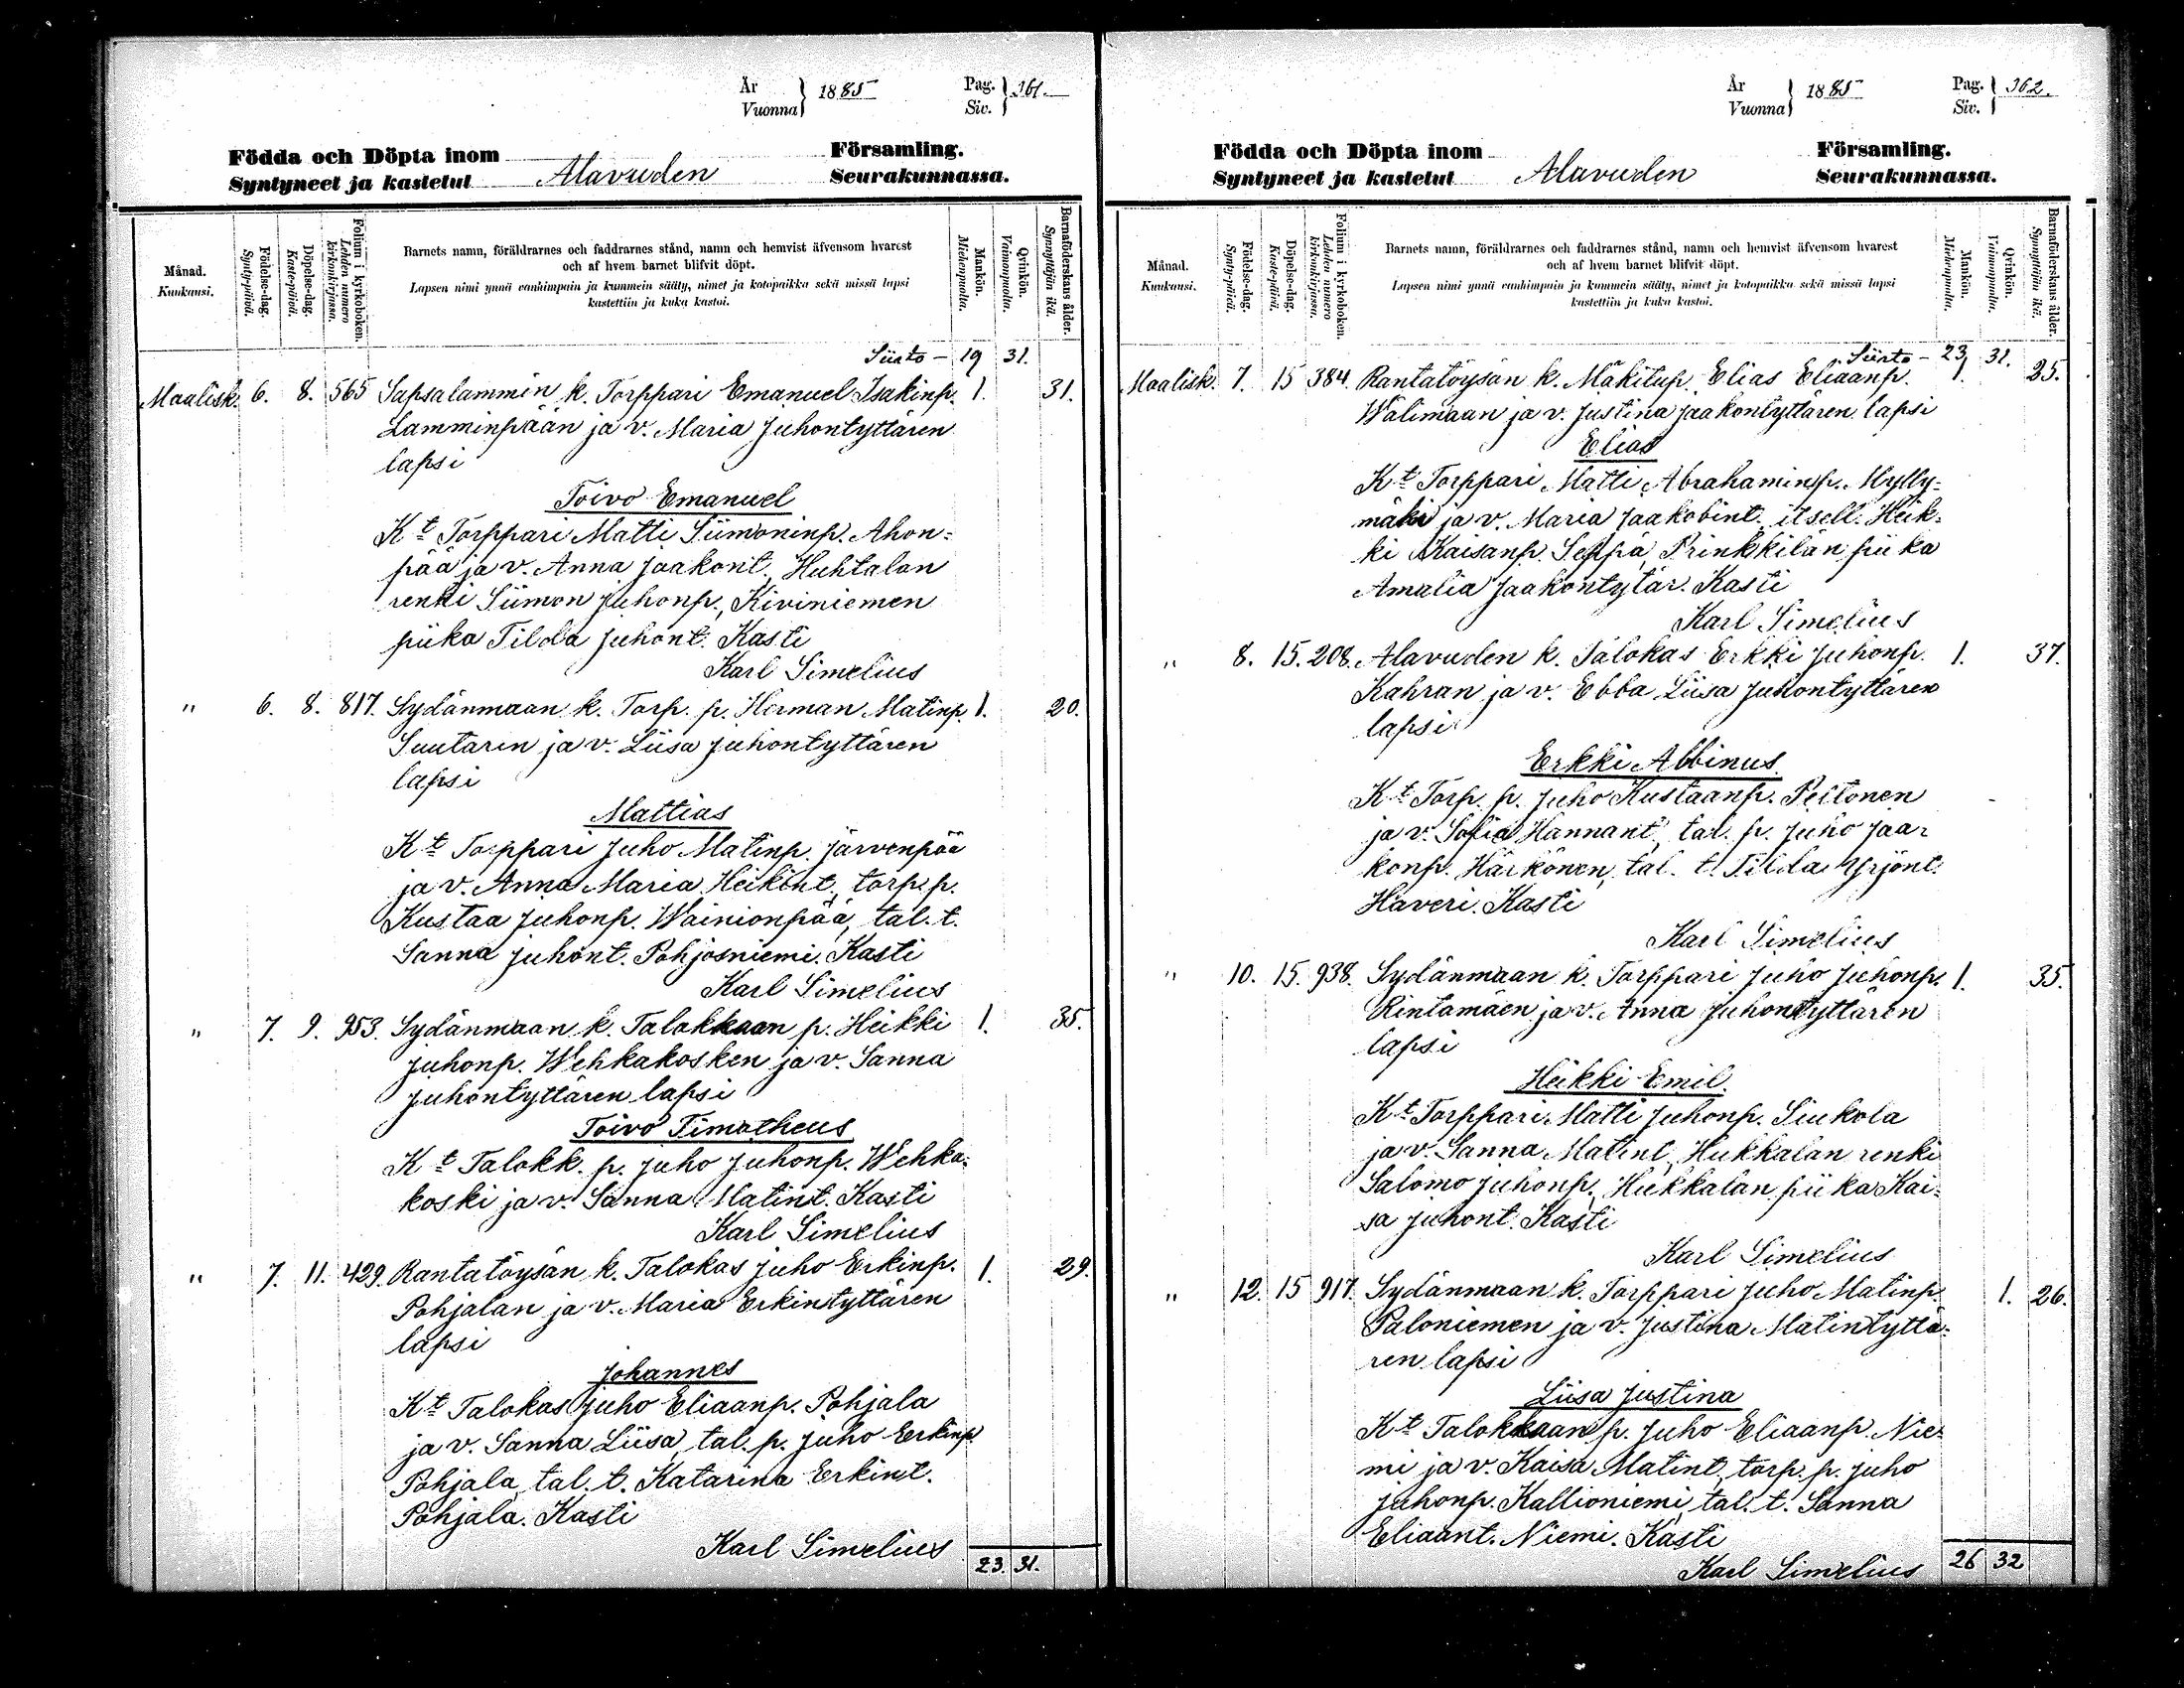 År
Vuonna
1885
Pag.
Siv.
361.
Födda och Döpta inom
Församling.
Syntyneet ja kastetut
Alavuden
Seurakunnassa.
Månad.
Kuukausi.
Födelse-dag.
Synty-päivä.
Döpelse-dag.
Kaste-päivä.
Folium i kyrkoboken.
Lehden numero kirkonkirjassa.
Barnets namn, föräldrarnes och faddrarnes stånd, namn och hemvist äfvensom hvarest
och af hvem barnet blifvit döpt.
Lapsen nimi ynnä vanhimpain ja kummein sääty, nimet ja kotopaikka sekä missä lapsi
kastettiin ja kuka kastoi.
Mankön.
Miehenpuolta.
Qvinkön.
Vaimonpuolta.
Barnaföderskans ålder.
Synnyttäjän ikä.
Siirto - 19 31.
Maalisk. 6. 8. 565 Sapsalammin k. Torppari Emanuel Isakinp. 1. 31.
Lamminpään ja v. Maria Juhontyttären
lapsi
Toivo Emanuel
Kt Torppari Matti Siimoninp. Ahon=
pää ja v. Anna Jaakont. Huhtalan
renki Siimon Juhonp., Kiviniemen
piika Tilda Juhont. Kasti
Karl Simelius
" 6. 8. 817. Sydänmaan k. Torp. p. Herman Matinp. 1. 20.
Suutarin ja v. Liisa Juhontyttären
lapsi
Mattias
Kt Torppari Juho Matinp. Järvenpää
ja v. Anna Maria Heikint., torp. p.
Kustaa Juhonp. Wainionpää, tal. t.
Sanna Juhont. Pohjosniemi. Kasti
Karl Simelius
" 7. 9. 953. Sydänmaan k. Talokkaan p. Heikki 1. 35.
Juhonp. Wehkakosken ja v. Sanna
Juhontyttären lapsi
Toivo Timotheus
Kt Talokk. p. Juho Juhonp. Wehka=
koski ja v. Sanna Matint. Kasti
Karl Simelius
" 7. 11. 429. Rantatöysän k. Talokas Juho Erkinp. 1. 29.
Pohjalan ja v. Maria Erkintyttären
lapsi
Johannes
Kt Talokas Juho Eliaanp. Pohjala
ja v. Sanna Liisa, tal. p. Juho Erkinp.
Pohjala, tal. t. Katarina Erkint.
Pohjala. Kasti
Karl Simelius
23. 31.
År
Vuonna
1885
Pag.
Siv.
362.
Födda och Döpta inom
Församling.
Syntyneet ja kastetut
Alavuden
Seurakunnassa.
Månad.
Kuukausi.
Födelse-dag.
Synty-päivä.
Döpelse-dag.
Kaste-päivä.
Folium i kyrkoboken.
Lehden numero kirkonkirjassa.
Barnets namn, föräldrarnes och faddrarnes stånd, namn och hemvist äfvensom hvarest
och af hvem barnet blifvit döpt.
Lapsen nimi ynnä vanhimpain ja kummein sääty, nimet ja kotopaikka sekä missä lapsi
kastettiin ja kuka kastoi.
Mankön.
Miehenpuolta.
Qvinkön.
Vaimonpuolta.
Barnaföderskans ålder.
Synnyttäjän ikä.
Siirto - 23 31.
Maalisk. 7. 15 384. Rantatöysän k. Mäkitup. Elias Eliaanp. 1. 25.
Wälimaan ja v. Justina Jaakontyttären lapsi
Elias
Kt Torppari Matti Abrahaminp. Mylly=
mäki ja v. Maria Jaakobint. itsell. Heik=
ki Kaisanp. Seppä, Prinkkilän piika
Amalia Jaakontytär. Kasti
Karl Simelius
" 8. 15. 208. Alavuden k. Talokas Erkki Juhonp. 1. 37.
Kahran ja v. Ebba Liisa Juhontyttären
lapsi
Erkki Albinus.
Kt Torp. p. Juho Kustaanp. Peltonen
ja v. Sofia Hannant., tal. p. Juho Jaa=
konp. Härkönen, tal. t. Tilda Yrjönt.
Haveri. Kasti
Karl Simelius
" 10. 15. 938. Sydänmaan k. Torppari Juho Juhonp. 1. 35.
Rintamäen ja v. Anna Juhontyttären
lapsi
Heikki Emil.
Kt Torppari Matti Juhonp. Siukola
ja v. Sanna Matint., Hukkalan renki
Salomo Juhonp., Hukkalan piika Kai=
sa Juhont. Kasti
Karl Simelius
" 12. 15 917. Sydänmaan k. Torppari Juho Matinp. 1. 26.
Paloniemen ja v. Justina Matintyttä=
ren lapsi
Liisa Justina
Kt Talokkaan p. Juho Eliaanp. Nie=
mi ja v. Kaisa Matint., torp. p. Juho
Juhonp. Kallioniemi, tal. t. Sanna
Eliaant. Niemi. Kasti
Karl Simelius
26 32